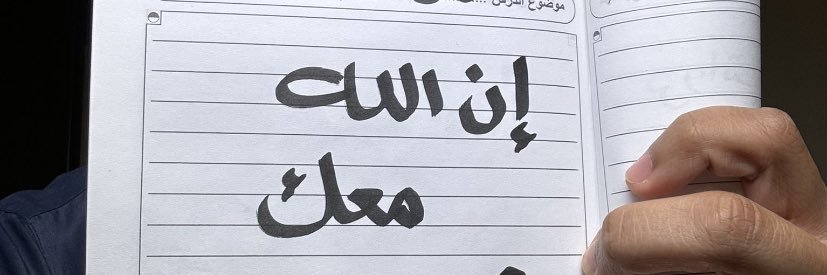 موضوع الدرس
إن الله
معك